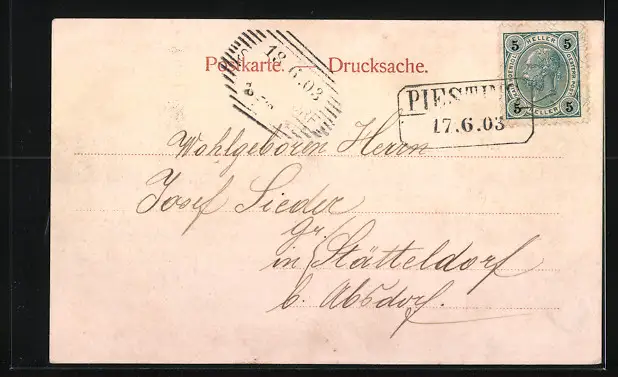 Postkarte. Drucksache.
18.6.03
PIESTI
17.6.03
5 HELLER 5
5 HELLER 5
Wohlgeboren Herrn
Josef Sieder
gr.
in Stätteldorf
b. Absdorf.